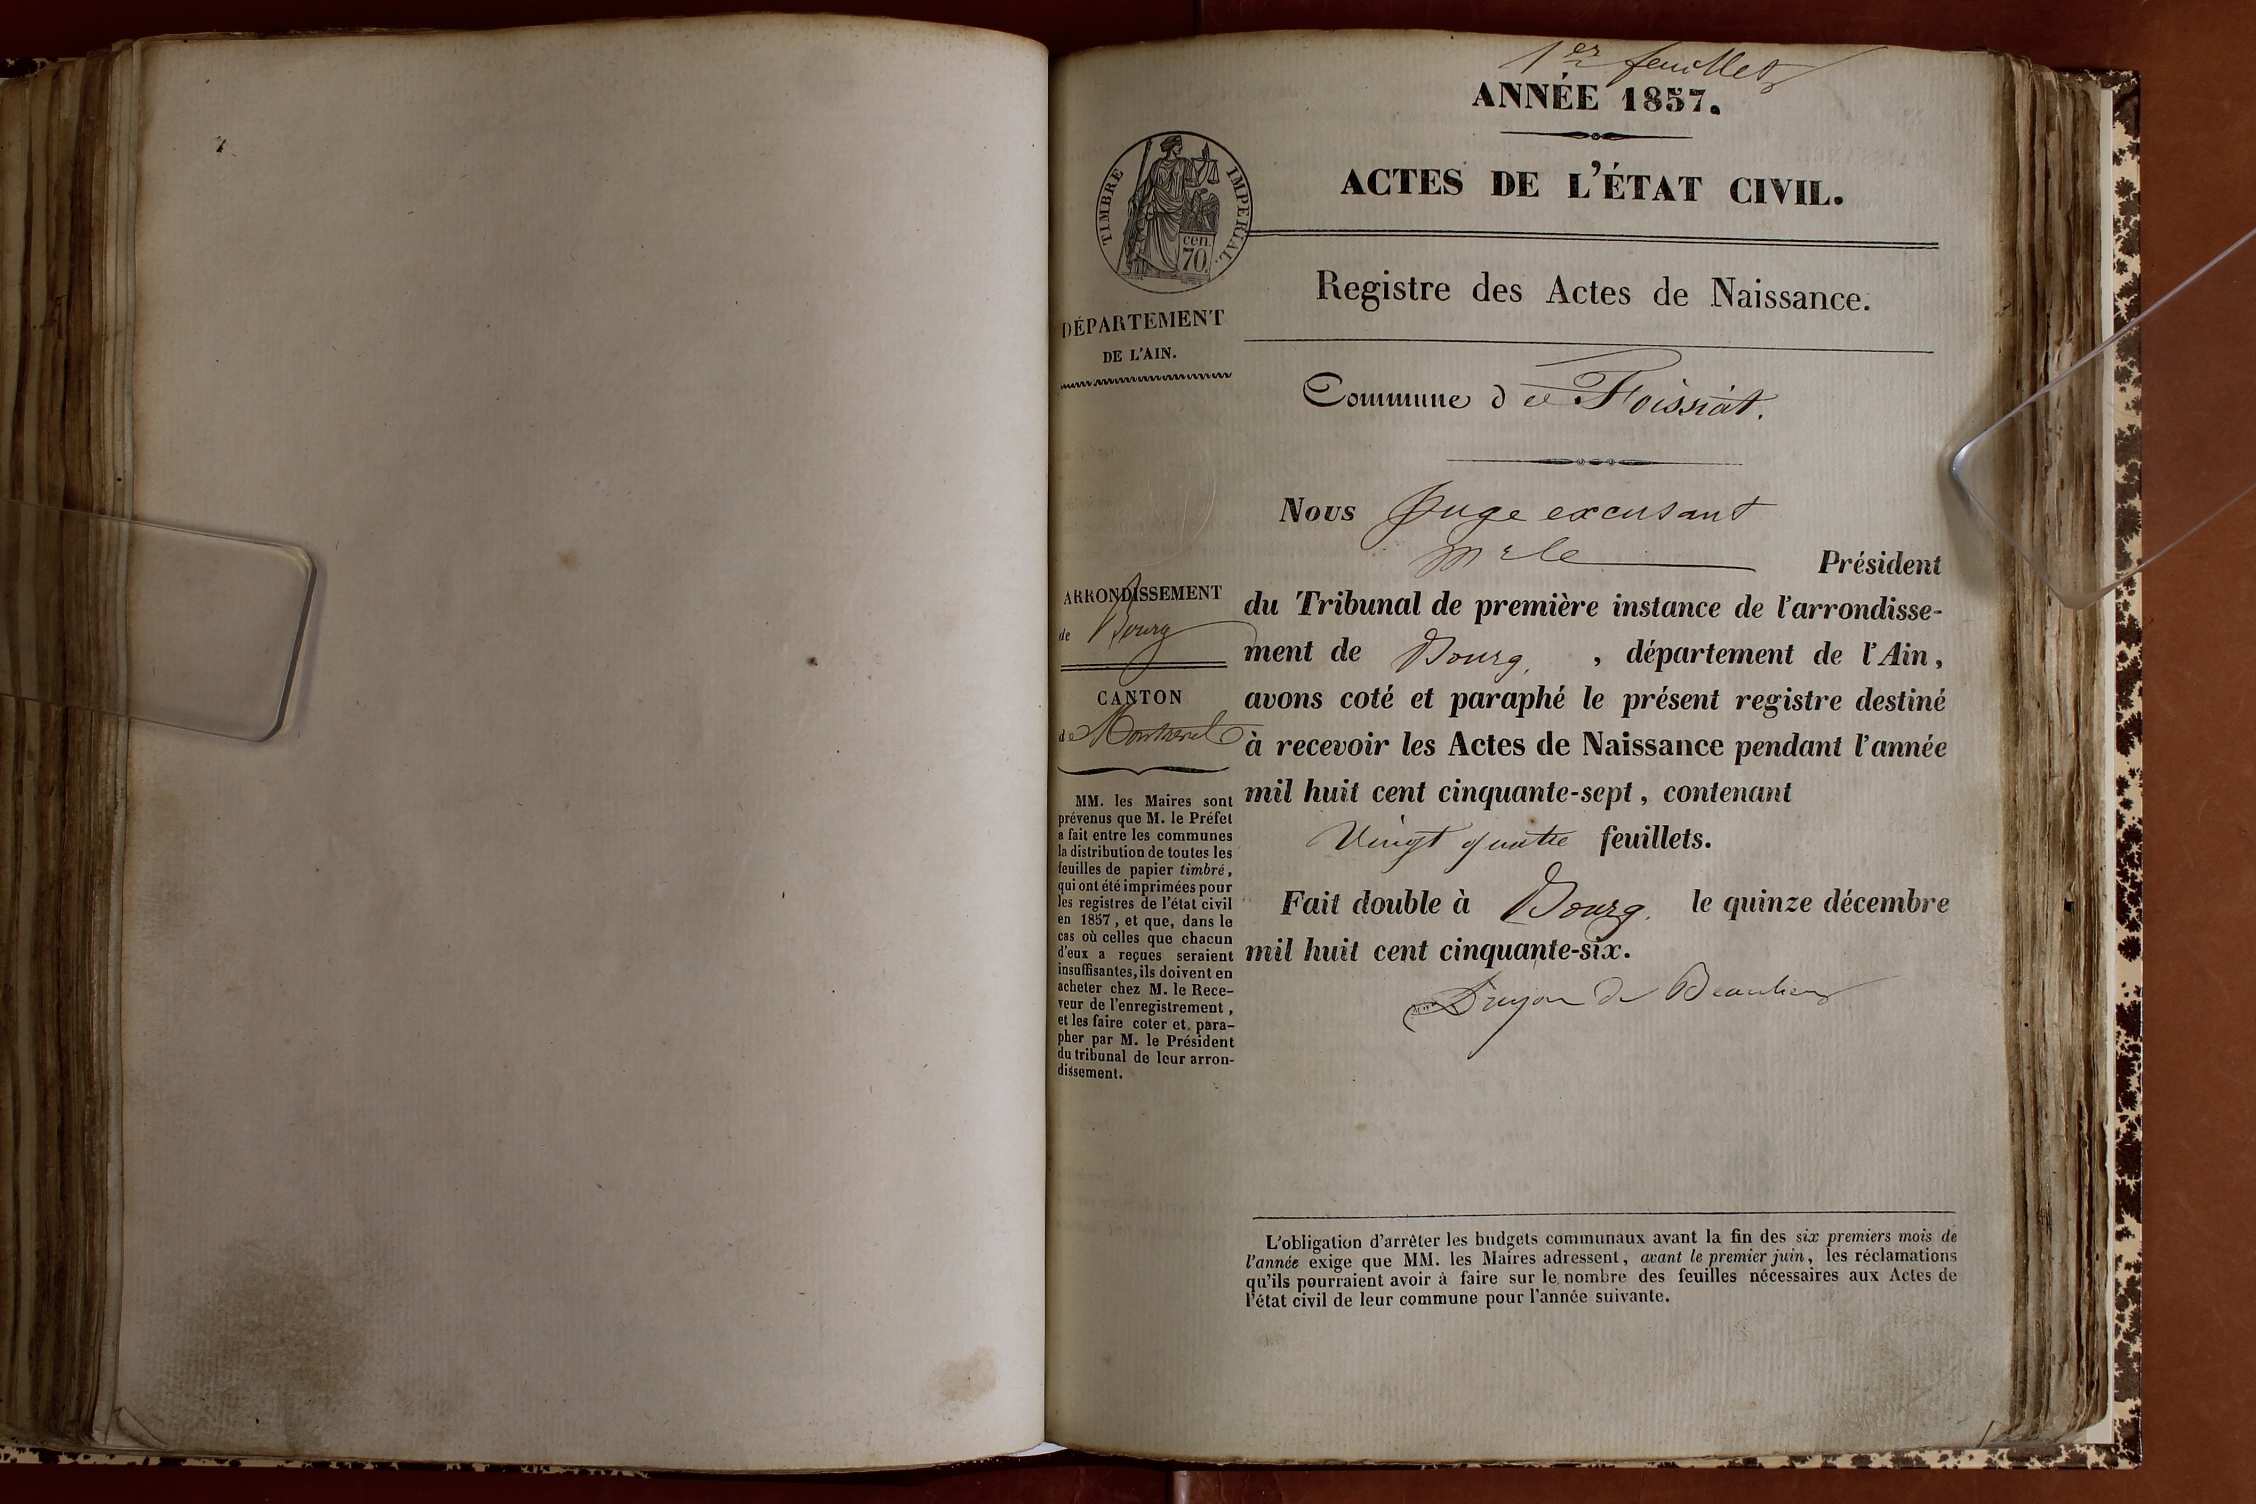 1er feuillet
ANNÉE 1857.
ACTES DE L'ÉTAT CIVIL.
TIMBRE IMPERIAL.
cen.
70
Registre des Actes de Naissance.
DÉPARTEMENT
DE L'AIN.
Commune de Foissiat.
Nous Juge excusant
Mr le Président
du Tribunal de première instance de l'arrondisse-
ment de Bourg, , département de l'Ain,
avons coté et paraphé le présent registre destiné
à recevoir les Actes de Naissance pendant l'année
mil huit cent cinquante-sept, contenant
Vingt quatre feuillets.
Fait double à Bourg. le quinze décembre
mil huit cent cinquante-six.
de Beaulieu
ARRONDISSEMENT
de Bourg
CANTON
de Montrevel
MM. les Maires sont
prévenus que M. le Préfet
a fait entre les communes
la distribution de toutes les
feuilles de papier timbré,
qui ont été imprimées pour
les registres de l'état civil
en 1857, et que, dans le
cas où celles que chacun
d'eux a reçues seraient
insuffisantes, ils doivent en
acheter chez M. le Rece-
veur de l'enregistrement,
et les faire coter et para-
pher par M. le Président
du tribunal de leur arron-
dissement.
L'obligation d'arrêter les budgets communaux avant la fin des six premiers mois de
l'année exige que MM. les Maires adressent, avant le premier juin, les réclamations
qu'ils pourraient avoir à faire sur le nombre des feuilles nécessaires aux Actes de
l'état civil de leur commune pour l'année suivante.